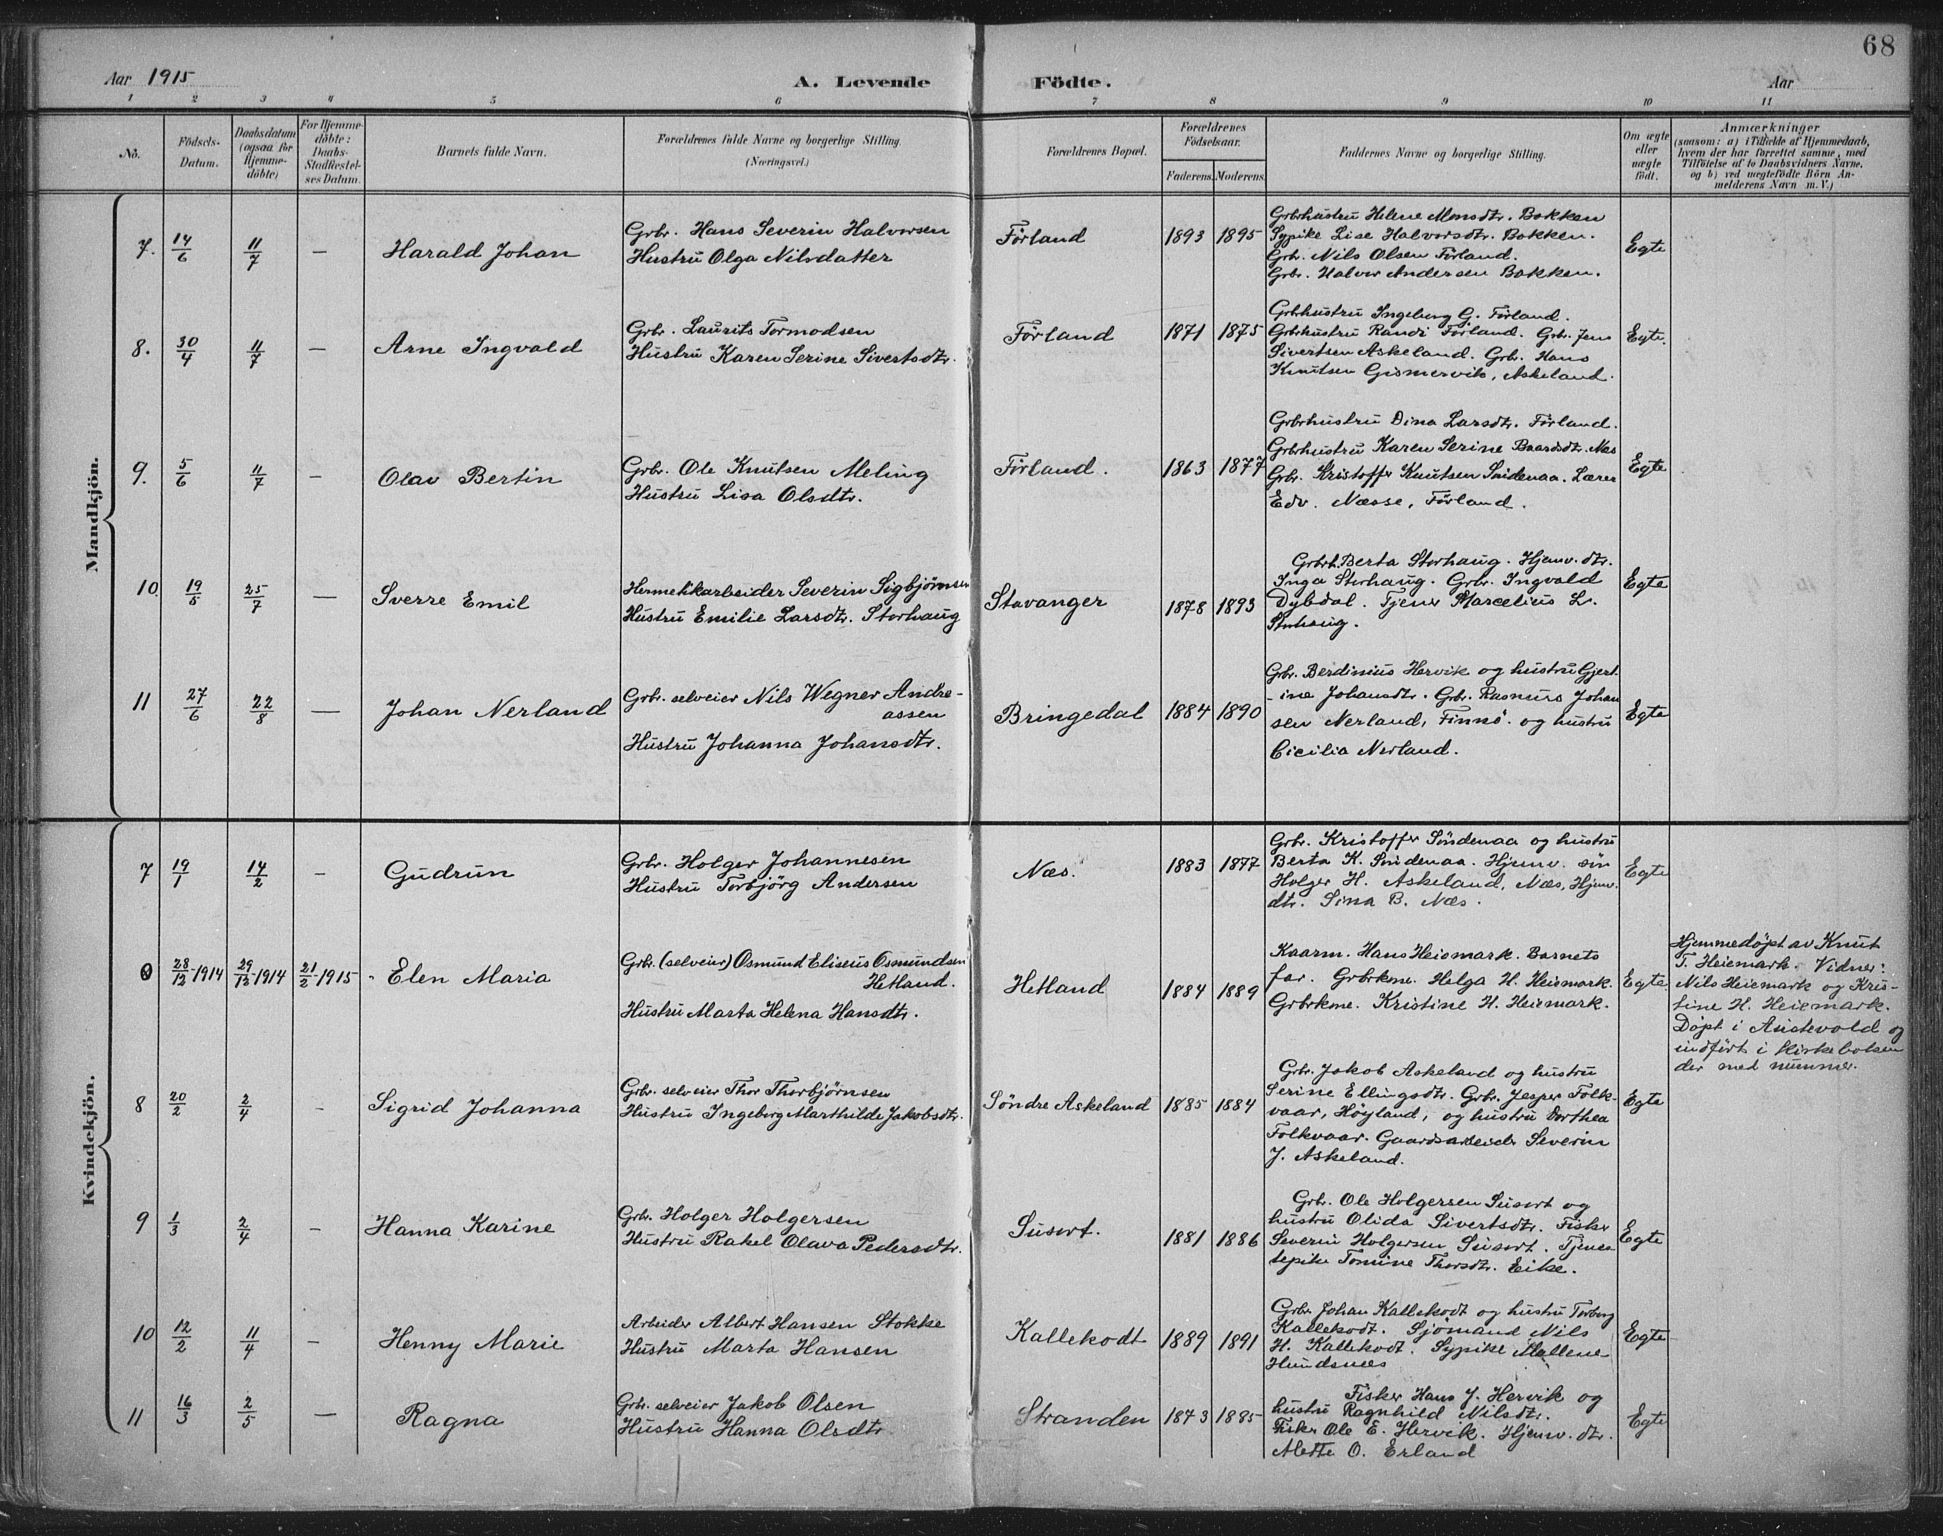 68
Aar 1915 A. Levende Födte. Aar
1 2 3 4 5 6 7 8 9 10 11
No.
Födsels-
Datum.
Daabsdatum
(ogsaa for
Hjemme-
döbte)
For Hjemme-
döbte:
Daabs-
Stadfæstel-
ses Datum.
Barnets fulde Navn.
Forældrenes fulde Navne og borgerlige Stilling.
(Næringsvei.)
Forældrenes Bopæl.
Forældrenes
Födselsaar.
Faderens. Moderens.
Faddernes Navne og borgerlige Stilling.
Om ægte
eller
uægte
født.
Anmærkninger
(saasom: a) i Tilfælde af Hjemmedaab,
hvem der har forrettet samme, med
Tilföielse af to Daabsvidners Navne.
og b) ved uægtefödte Börn An-
melderens Navn m. V.)
Mandkjön.
7. 14/6 11/7 — Harald Johan
Grbr. Hans Severin Halvorsen
Hustru Olga Nilsdatter
Førland 1893 1895
Grbrhustru Helene Monsdtr. Bokken
Sypike Lise Halvorsdtr. Bokken.
Grbr. Nils Olsen Førland.
Grbr. Halvor Andersen Bokken.
Egte
8. 30/4 11/7 — Arne Ingvald
Grbr. Laurits Tormodsen
Hustru Karen Serine Sivertsdtr.
Førland 1871 1875
Grbrhustru Ingeborg G. Førland.
Grbrhustru Randi Førland. Grbr. Jens
Sivertsen Askeland. Grbr. Hans
Knutsen Gismervik, Askeland.
Egte.
9. 5/6 11/7 — Olav Bertin
Grbr. Ole Knutsen Meling
Hustru Lisa Olsdtr.
Førland. 1863 1877
Grbrhustru Dina Larsdtr. Førland.
Grbrhustru Karen Serine Baardsdt. Næs
Grbr. Kristoffer Knutsen Søndenaa. Lærer
Edv. Næsse, Førland.
Egte
10. 19/5 25/7 — Sverre Emil
Hermetikarbeider Severin Sigbjørnsen
Hustru Emilie Larsdtr. Storhaug
Stavanger 1878 1893
Grbrh. Berta Storhaug. Hjemv. dtr.
Inga Storhaug. Grbr. Ingvald
Dybdal. Tjener Marcelius L.
Storhaug.
Egte
11 27/6 22/8 — Johan Nerland
Grbr. selveier Nils Wegner Andre-
assen
Hustru Johanna Johansdtr.
Bringedal 1884 1890
Grbr. Berdinius Hervik og hustru Gjert
-ine Johansdtr. Grbr. Rasmus Johan
sen Nerland, Finnø. og hustru
Cicilia Nerland.
Egte
Kvindekjön.
7 19/1 14/2 – Gudrun
Grbr. Holger Johannesen
Hustru Torbjörg Andersen
Næs. 1883 1877
Grbr. Kristoffer Søndenaa og hustru
Berta K. Søndenaa. Hjemv. søn
Holger H. Askeland, Næs, Hjemv.
dtr. Sina B. Næs.
Egte
0 28/12-1914 29/12-1914 21/2-1915 Elen Maria
Grbr. (selveier) Osmund Eliseus Osmundsen
Hetland.
Hustru Marta Helena Hansdtr.
Hetland 1884 1889
Kaarm. Hans Heiemark. Barnets
far. Grbrkone. Helga H. Heiemark.
Grbrkone. Kristine H. Heiemark.
Egte
Hjemmedøpt av Knut
T. Heiemark. Vidner:
Nils Heiemark og Kris-
tine H. Heiemark.
Døpt i Austevold og
indført i kirkeboken
der med nummer.
8 20/2 2/4 – Sigrid Johanna
Grbr. selveier Thor Thorbjørnsen
Hustru Ingeborg Marthilde Jakobsdtr.
Søndre Askeland 1885 1884
Grbr. Jakob Askeland og hustru
Serine Ellingsdtr. Grbr. Jesper Folk-
vaar, Høyland, og hustru Dorthea
Folkvaar. Gaardsarbeider Severin
J. Askeland.
Egte
9 1/3 2/4 – Hanna Karine
Grbr. Holger Holgersen
Hustru Rakel Olava Pedersdtr.
Susort. 1881 1886
Grbr. Ole Holgersen Susort og
hustru Olida Sivertsdtr. Fisker
Severin Holgersen Susort. Tjenes
tepike Tomine Thorsdtr. Eike.
Egte
10 12/2 11/4 – Henny Marie
Arbeider Albert Hansen Stokke
Hustru Marta Hansen
Kallekodt 1889 1891
Grbr. Johan Kallekodt og hustru Torborg
Kallekodt. Sjømand Nils
H. Kallekodt. Sypike Mallene
Hundsnes
Egte
11 16/3 2/5 — Ragna
Grbr. selveier Jakob Olsen
Hustru Hanna Olsdtr.
Stranden 1873 1885
Fisker Hans J. Hervik og
hustru Ragnhild Nilsdtr.
Fisker Ole E. Hervik. Hjemv. dtr.
Mette O. Erland
Egte